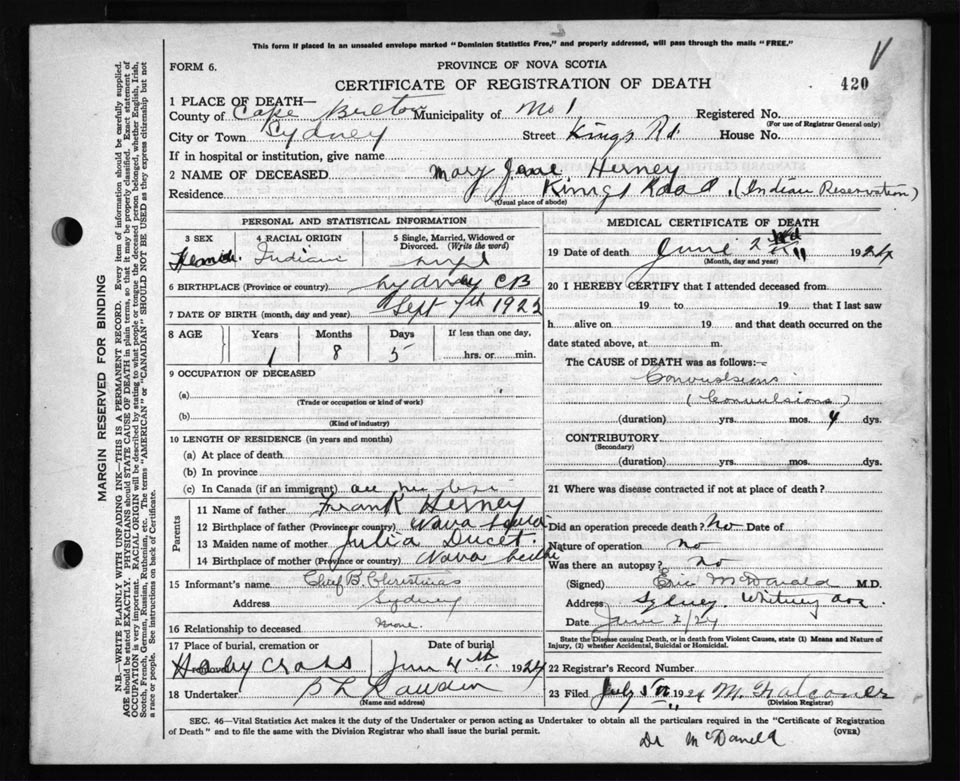 This form if placed in an unsealed envelope marked "Dominion Statistics Free," and properly addressed, will pass through the mails "FREE."
FORM 6.
PROVINCE OF NOVA SCOTIA
CERTIFICATE OF REGISTRATION OF DEATH
420
1 PLACE OF DEATH—
County of Cape Breton Municipality of No 1 Registered No.
(For use of Registrar General only)
City or Town Sydney Street Kings Rd. House No.
If in hospital or institution, give name
2 NAME OF DECEASED Mary Jane Herney
Residence Kings Road. (Indian Reservation)
(Usual place of abode)
PERSONAL AND STATISTICAL INFORMATION
3 SEX
4 RACIAL ORIGIN Indian
5 Single, Married, Widowed or Divorced. (Write the word)
6 BIRTHPLACE (Province or country) Sydney CB
7 DATE OF BIRTH (month, day and year) Sept 7th 1922
8 AGE Years Months Days If less than one day,
1 8 5 hrs. or min.
9 OCCUPATION OF DECEASED
(a)
(Trade or occupation or kind of work)
(b)
(Kind of industry)
10 LENGTH OF RESIDENCE (in years and months)
(a) At place of death
(b) In province
(c) In Canada (if an immigrant) all
Parents
11 Name of father Frank Herney
12 Birthplace of father (Province or country) Nova Scotia
13 Maiden name of mother Julia Ducet.
14 Birthplace of mother (Province or country) Nova
15 Informant's name Chief B. Christmas
Address Sydney
16 Relationship to deceased None.
17 Place of burial, cremation or removal Holy Cross
Date of burial June 4th 1924
18 Undertaker
(Name and address)
MEDICAL CERTIFICATE OF DEATH
19 Date of death June 2nd 1924
(Month, day and year)
20 I HEREBY CERTIFY that I attended deceased from
19 to 19 that I last saw
h alive on 19 and that death occurred on
date stated above, at m.
The CAUSE of DEATH was as follows:—
Convulsions
(Convulsions)
(duration) yrs. mos. 4 dys.
CONTRIBUTORY
(Secondary)
(duration) yrs. mos. dys.
21 Where was disease contracted if not at place of death?
Did an operation precede death? No Date of
Nature of operation no
Was there an autopsy? no
(Signed) Eric McDonald M.D.
Address Sydney. Whitney Ave.
Date June 2/24
State the Disease causing Death, or in death from Violent Causes, state (1) Means and Nature of
Injury, (2) whether Accidental, Suicidal or Homicidal.
22 Registrar's Record Number
23 Filed July 5 1924 M. Falconer
(Division Registrar)
SEC. 46—Vital Statistics Act makes it the duty of the Undertaker or person acting as Undertaker to obtain all the particulars required in the "Certificate of Registration
of Death" and to file the same with the Division Registrar who shall issue the burial permit.
(OVER)
Dr McDonald
MARGIN RESERVED FOR BINDING
N.B.—WRITE PLAINLY WITH UNFADING INK—THIS IS A PERMANENT RECORD. Every item of information should be carefully supplied.
AGE should be stated EXACTLY. PHYSICIANS should STATE CAUSE OF DEATH in plain terms, so that it may be properly classified. Exact statement of
OCCUPATION is very important. RACIAL ORIGIN will be described by stating to what people or tongue the deceased person belonged, whether English, Irish,
Scotch, French, German, Russian, Ruthenian, etc. The terms "AMERICAN" or "CANADIAN" SHOULD NOT BE USED as they express citizenship but not
a race or people. See instructions on back of Certificate.